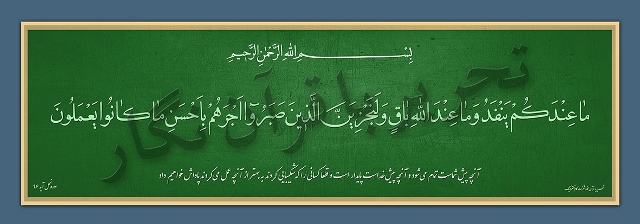 بِسْمِ اللهِ الرَّحْمٰنِ الرَّحِيمِ
مَا عِنْدَكُمْ يَنْفَدُ وَمَا عِنْدَ اللهِ بَاقٍ وَلَنَجْزِيَنَّ الَّذِينَ صَبَرُوا أَجْرَهُمْ بِأَحْسَنِ مَا كَانُوا يَعْمَلُونَ
آنچه پیش شماست تمام می شود و آنچه پیش خداست پایدار است و قطعا کسانی را که شکیبایی کردند به بهتر از آنچه عمل می کردند پاداش خواهیم داد
سوره نحل آیه ۹۶